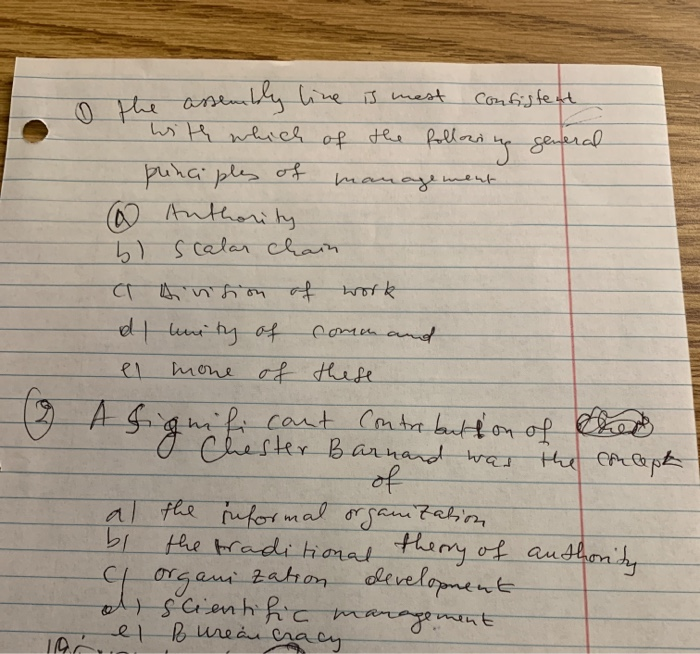 ① the assembly line is most consistent
with which of the following general
principles of management
(a) Authority
b) Scalar chain
c) Division of work
d) unity of command
e) none of these
(2) A significant contribution of
Chester Barnard was the concept
of
a) the informal organization
b) the traditional theory of authority
c) organization development
d) scientific management
e) Bureaucracy